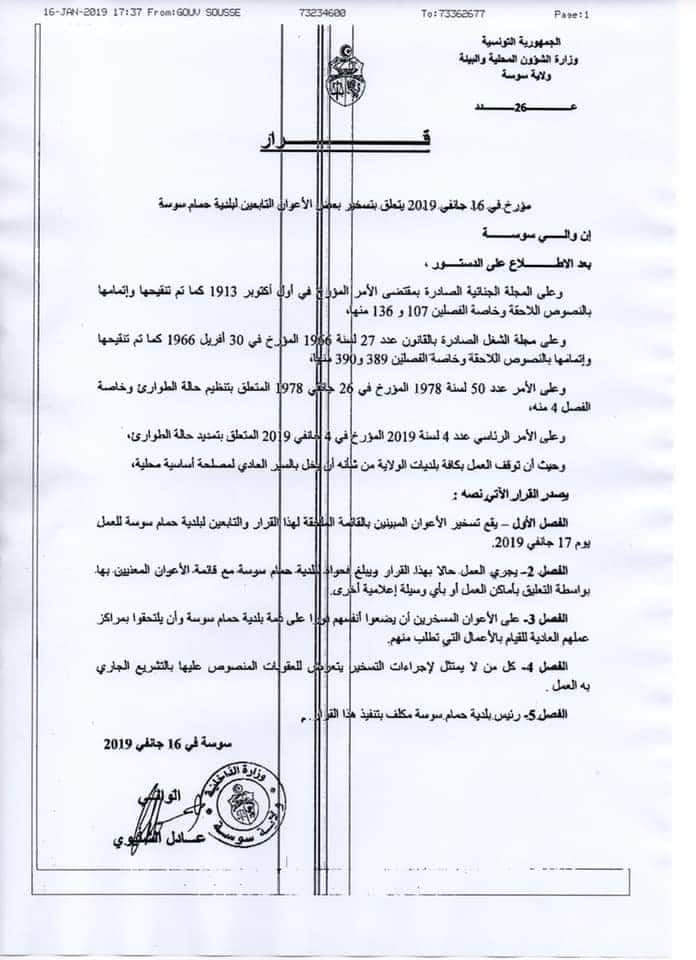 16-JAN-2019 17:37 From:GOUV SOUSSE 73234600 To:73362677 Page:1
الجمهورية التونسية
وزارة الشؤون المحلية والبيئة
ولاية سوسة
عـــــــ26ـــــــدد
قـــــــــرار
مؤرخ في 16 جانفي 2019 يتعلق بتسخير بعض الأعوان التابعين لبلدية حمام سوسة
إن والـــــي سوســـــة
بعد الاطـــــلاع على الدستـــور ،
وعلى المجلة الجنائية الصادرة بمقتضى الأمر المؤرخ في أول أكتوبر 1913 كما تم تنقيحها وإتمامها
بالنصوص اللاحقة وخاصة الفصلين 107 و 136 منها،
وعلى مجلة الشغل الصادرة بالقانون عدد 27 لسنة 1966 المؤرخ في 30 أفريل 1966 كما تم تنقيحها
وإتمامها بالنصوص اللاحقة وخاصة الفصلين 389 و390 منها،
وعلى الأمر عدد 50 لسنة 1978 المؤرخ في 26 جانفي 1978 المتعلق بتنظيم حالة الطوارئ وخاصة
الفصل 4 منه،
وعلى الأمر الرئاسي عدد 4 لسنة 2019 المؤرخ في 4 جانفي 2019 المتعلق بتمديد حالة الطوارئ،
وحيث أن توقف العمل بكافة بلديات الولاية من شأنه أن يخل بالسير العادي لمصلحة أساسية محلية،
يصدر القرار الآتي نصه :
الفصل الأول – يقع تسخير الأعوان المبينين بالقائمة الملحقة لهذا القرار والتابعين لبلدية حمام سوسة للعمل
يوم 17 جانفي 2019.
الفصل 2- يجري العمل حالا بهذا القرار ويبلغ فحواه لبلدية حمام سوسة مع قائمة الأعوان المعنيين بها
بواسطة التعليق بأماكن العمل أو بأي وسيلة إعلامية أخرى.
الفصل 3- على الأعوان المسخرين أن يضعوا أنفسهم فورا على ذمة بلدية حمام سوسة وأن يلتحقوا بمراكز
عملهم العادية للقيام بالأعمال التي تطلب منهم.
الفصل 4- كل من لا يمتثل لإجراءات التسخير يتعرض للعقوبات المنصوص عليها بالتشريع الجاري
به العمل .
الفصل 5- رئيس بلدية حمام سوسة مكلف بتنفيذ هذا القرار . م
سوسة في 16 جانفي 2019
وزارة الداخلية
ولاية سوسة
الوالـــي
عـــادل